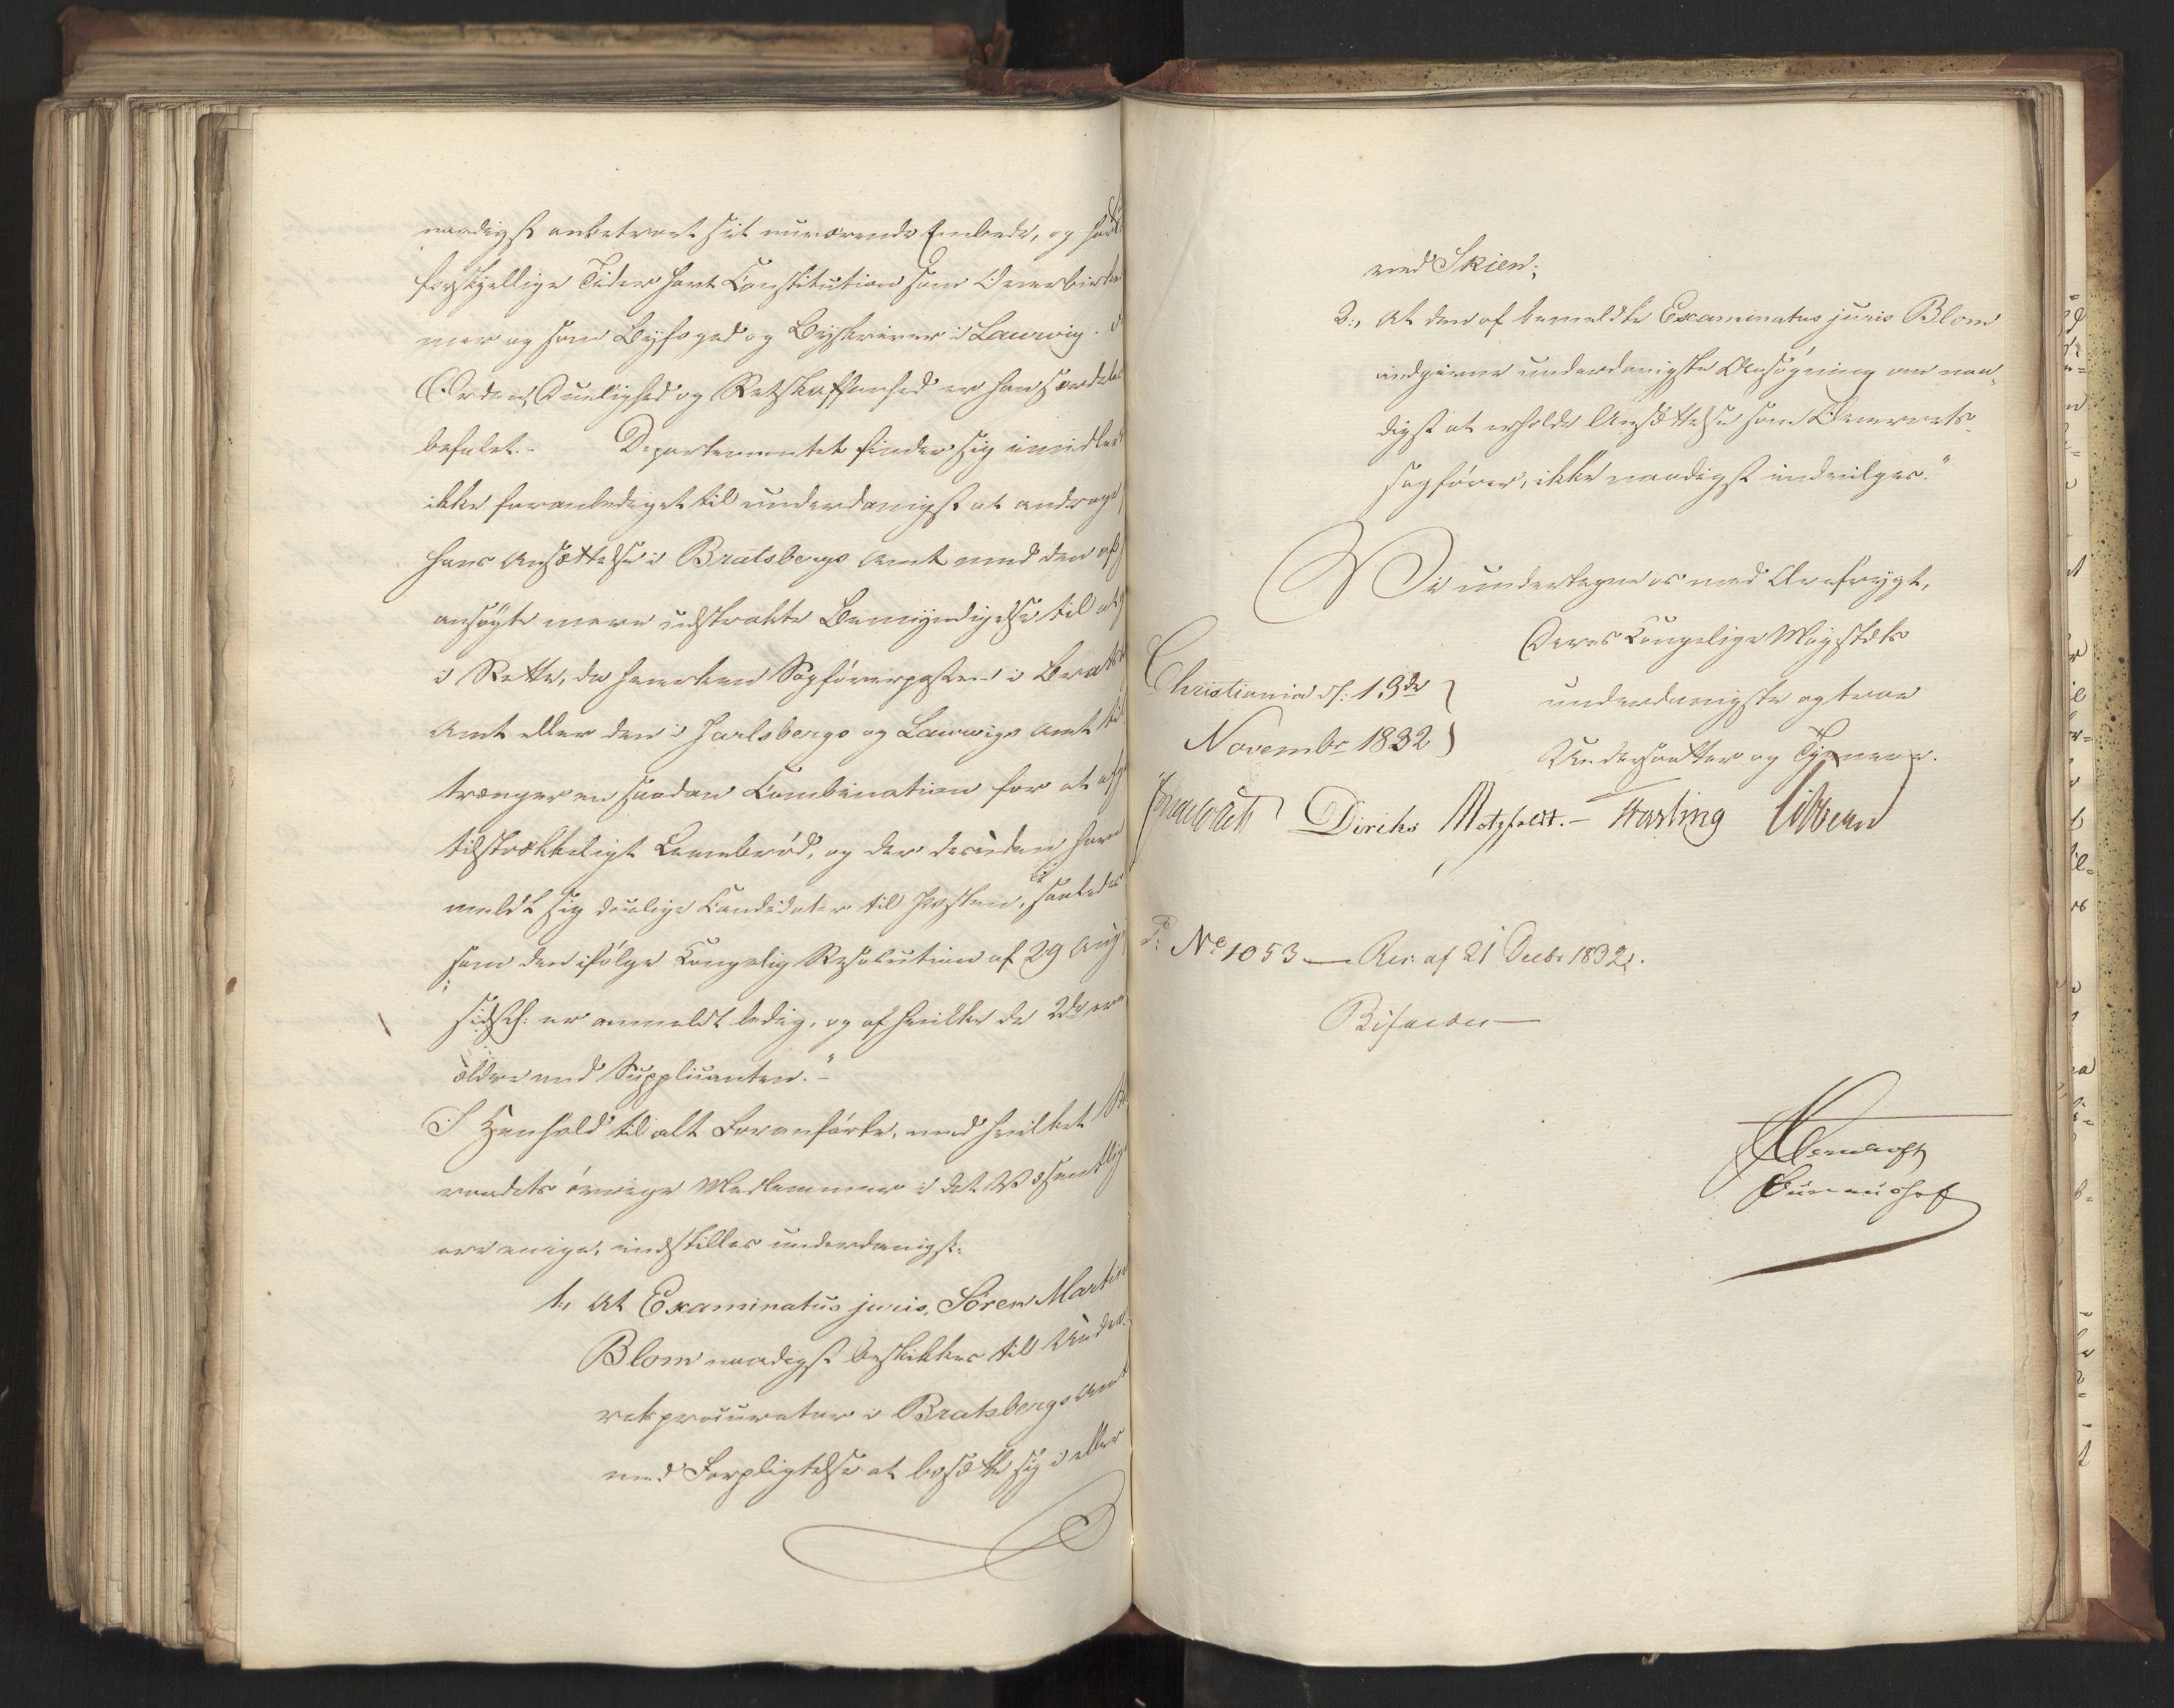 naadigst anbetroet sit nuværende Embede, og har
forskjellige Tider havt Constitution som Overbirke
mer og som Byfoged og Byskriver i Laurvig.
Orden, Duelighed og Retskaffenhed er han særdeles
befalet. - Departementet finder sig imidler
ikke foranlediget til underdanigst at andrage
hans Ansættelse i Bratsbergs Amt med den af
ansøgte mere udstrakte Bemyndigelse til at
i Rette, da hverken Sagførerposten i Brats
Amt eller den i Jarlsbergs og Laurvigs Amt
trænger en saadan Combination for at afg
tilstrækkeligt Levebrød, og der desuden har
meldt sig duelige Candidater til Posten, saaledes
som den ifølge Kongelig Resolution af 29 Aug
sidstl: er anmeldt ledig, og af hvilke de 2de ere
ældre end Supplicanten."-
I Henhold til alt Foranførte, med hvilket
raadets øvrige Medlemmer i det Væsentlige
ere enige, indstilles underdanigst:
1., At Examinatus juris, Sören Martin
Blom naadigst beskikkes til Under
retsprocurator i Bratsbergs Amt
med Forpligtelse at bosætte sig i eller
ved Skien;
2., At den af bemeldte Examinatus juris Blom
indgivne underdanigste Ansøgning om naa-
digst at erholde Ansættelse som Overrets-
sagfører, ikke naadigst indvilges."
Vi undertegne os med Ærefrygt,
Deres Kongelige Majestæts
underdanigste og troe
Undersaatter og Tjenere.
Christiania d: 13de
Novembr 1832
Diriks Motzfeldt.- Hasting Vibe
No 1053 — Res. af 21 Decbr 1832.
Bifaldes —